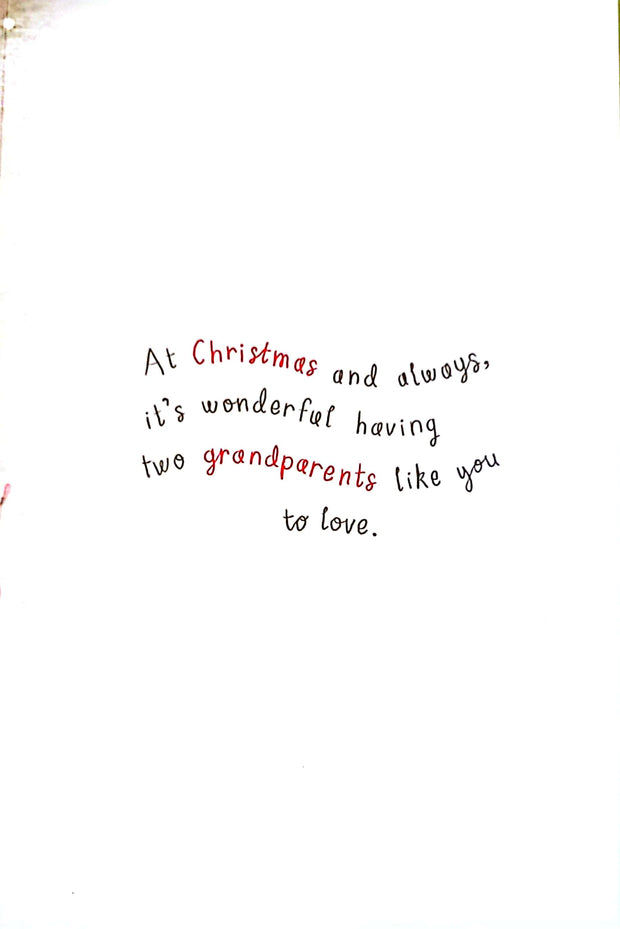 At Christmas and always,
it's wonderful having
two grandparents like you
to love.